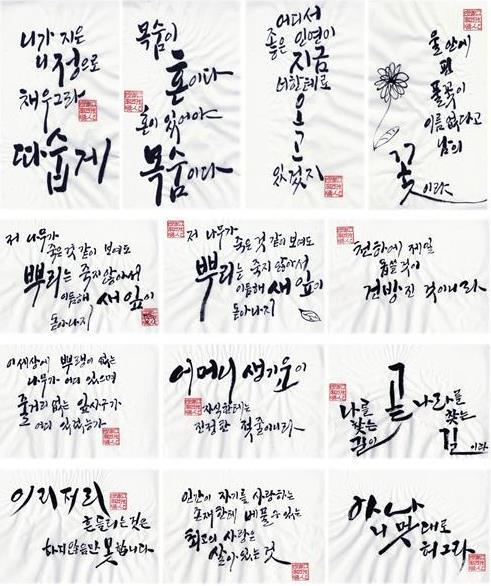 니가 지은
니 정으로
채우그라
따숩게
목숨이
혼이다
혼이 있어야
목숨이다
어디서
좋은 인연이
지금
너한테로
오고
있겠지
울 안에
핀
풀꽃이
이름 없다고
남의
꽃이라
저 나무가
죽은 것 같이 보여도
뿌리는 죽지 않아서
이듬해 새 잎이
돋아나지
저 나무가
죽은 것 같이 보여도
뿌리는 죽지 않아서
이듬해 새 잎이
돋아나지
천하에 제일
몹쓸 것이
건방진 것이니라
이 세상에 뿌랭이 없는
나무가 어데 있으며
줄거리 없는 잎사구가
어데 있겠는가
어머니 생기요이
자식한테는
진정한 젖줄이니라
나를
찾는
길이
곧
나라를
찾는
길이라
이리저리
흔들리는 것은
하지 않음만 못합니다
인간이 자기를 사랑하는
존재한테 베풀 수 있는
최고의 사랑은
살아 있는 것
아나
니 멋대로
혀 그라